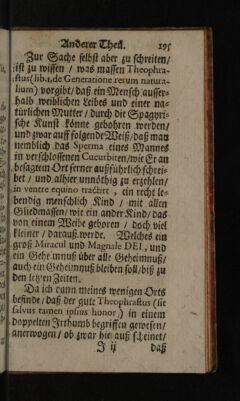 Anderer Theil. 195
Zur Sache selbst aber zu schreiten/
ist zu wissen / was massen Theophra-
stus (lib. 1. de Generatione rerum natura-
lium) vorgibt/ daß ein Mensch ausser-
halb weiblichen Leibes und einer na-
türlichen Mutter / durch die Spagyri-
sche Kunst könne gebohren werden/
und zwar auff folgende Weiß/ daß man
nemblich das Sperma eines Mannes
in verschlossenen Cucurbiten/ wie Er an
besagtem Ort ferner außführlich schrei-
bet / und allhier unnöthig zu erzehlen/
in ventre equino tractire, ein recht le-
bendig menschlich Kind / mit allen
Gliedmassen/ wie ein ander Kind/ das
von einem Weibe gebohren / doch viel
kleiner / darauß werde. Welches ein
groß Miracul und Magnale DEI, und
ein Geheimnuß über alle Geheimnuß/
auch ein Geheimnuß bleiben soll/ biß zu
den letzten Zeiten.
Da ich dann meines wenigen Orts
befinde/ daß der gute Theophrastus (sit
salvus tamen ipsius honor,) in einem
doppelten Irthumb begriffen gewesen/
anerwogen/ ob zwar hie auß scheinet/
J ij daß